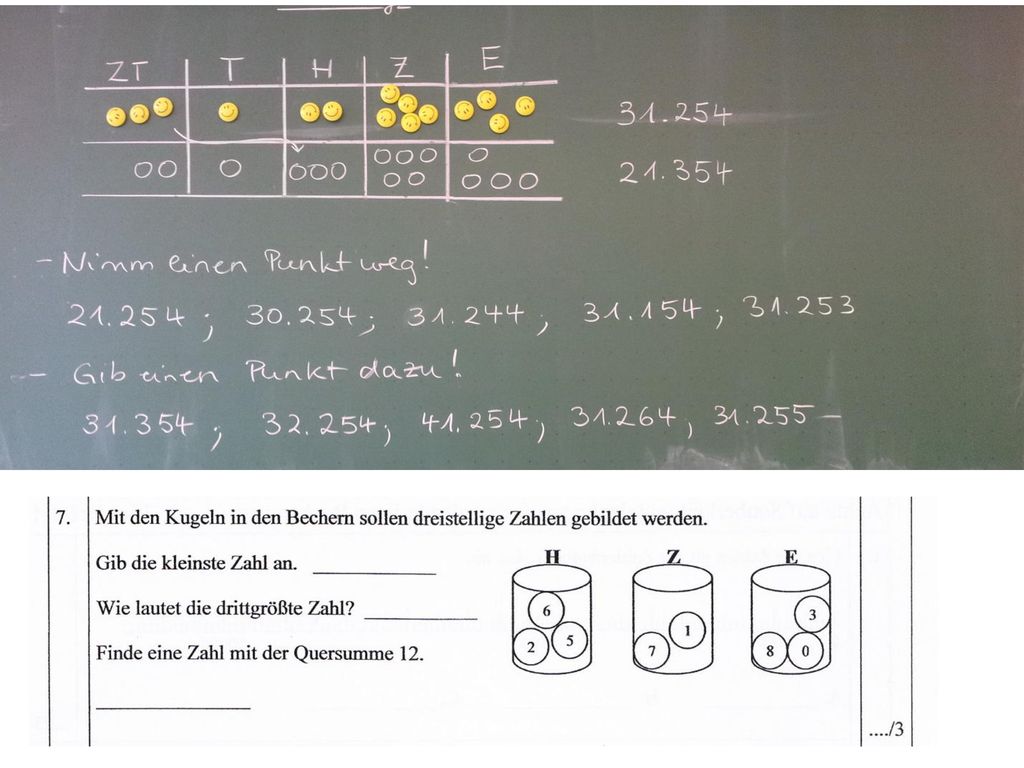 ZT T H Z E
31.254
21.354
- Nimm einen Punkt weg!
21.254; 30.254; 31.244; 31.154; 31.253
- Gib einen Punkt dazu!
31.354; 32.254; 41.254; 31.264, 31.255
7. Mit den Kugeln in den Bechern sollen dreistellige Zahlen gebildet werden.
Gib die kleinste Zahl an.
H Z E
Wie lautet die drittgrößte Zahl?
6 3
2 5 7 1 8 0
Finde eine Zahl mit der Quersumme 12.
..../3